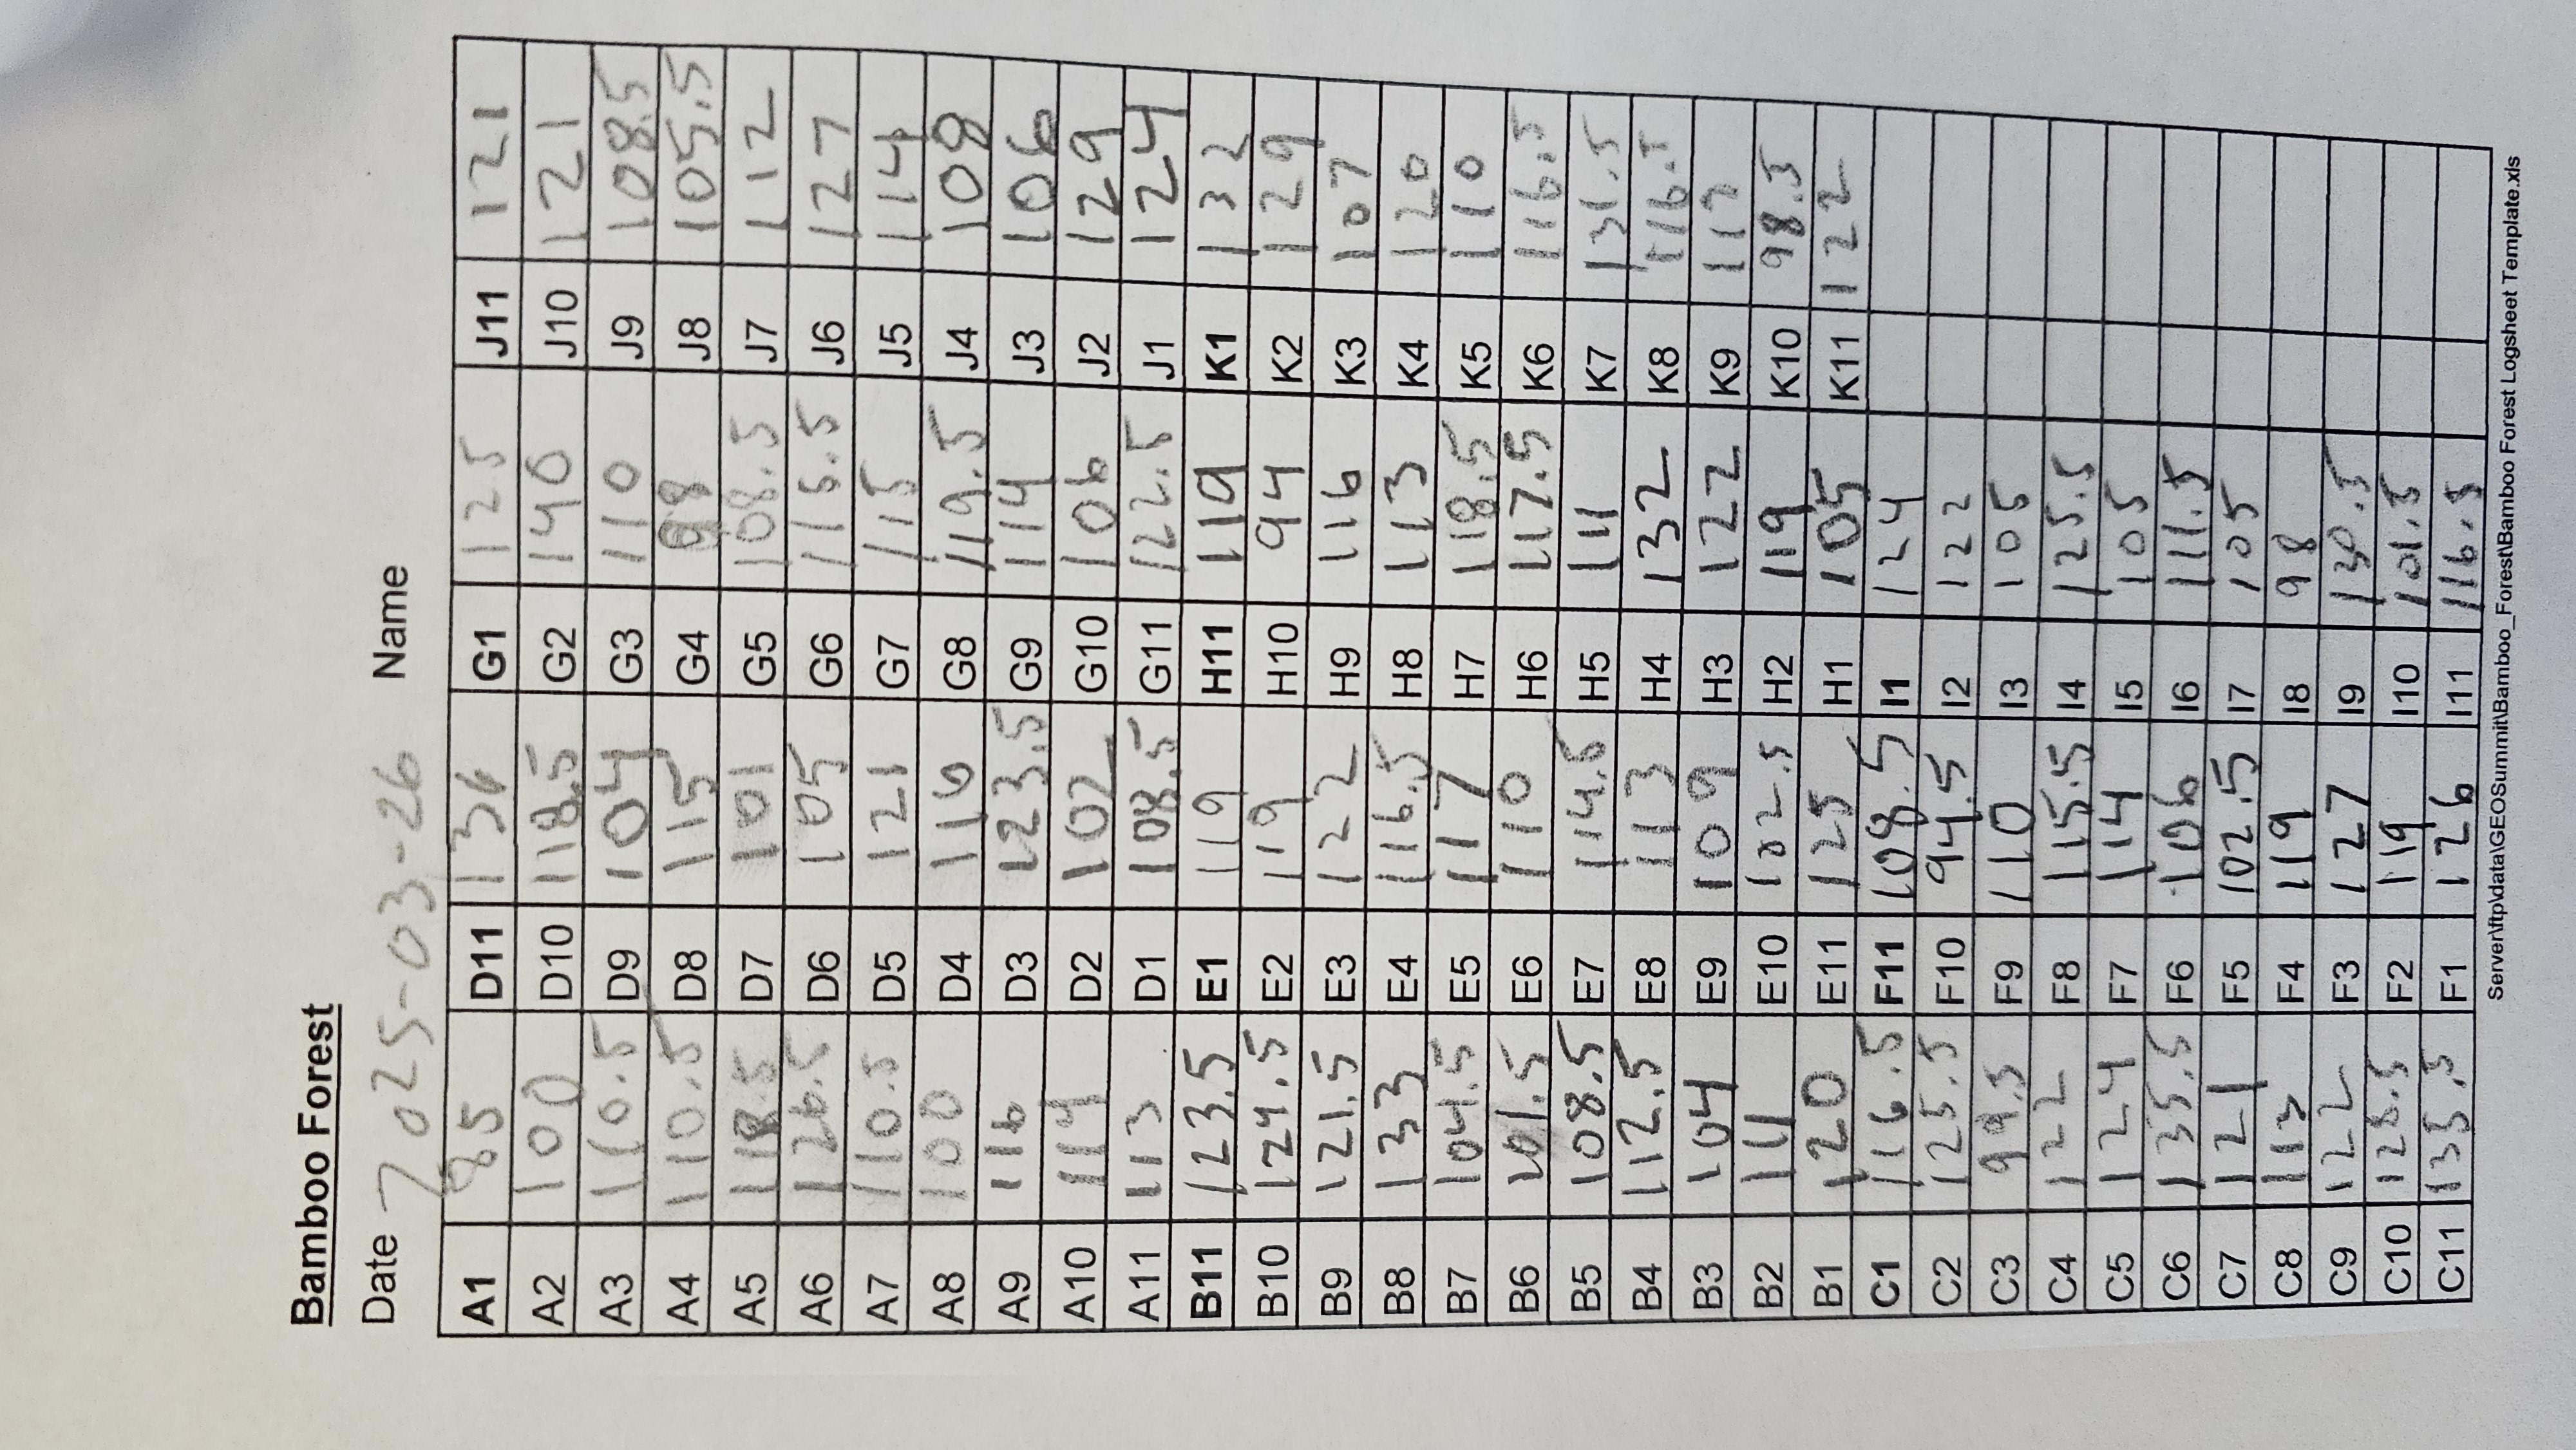 Bamboo Forest
Date 2025-03-26 Name
A1 85 D11 136 G1 125 J11 121
A2 100 D10 118.5 G2 140 J10 121
A3 110.5 D9 104 G3 110 J9 108.5
A4 110.5 D8 115 G4 98 J8 105.5
A5 118.5 D7 101 G5 108.5 J7 112
A6 126.5 D6 105 G6 115.5 J6 127
A7 110.5 D5 121 G7 115 J5 114
A8 100 D4 116 G8 119.5 J4 108
A9 116 D3 123.5 G9 114 J3 106
A10 114 D2 102 G10 106 J2 129
A11 113 D1 108.5 G11 122.5 J1 124
B11 123.5 E1 119 H11 119 K1 132
B10 124.5 E2 119 H10 94 K2 129
B9 121.5 E3 122 H9 116 K3 107
B8 133 E4 116.5 H8 113 K4 120
B7 104.5 E5 117 H7 118.5 K5 110
B6 101.5 E6 110 H6 117.5 K6 116.5
B5 108.5 E7 114.5 H5 111 K7 131.5
B4 112.5 E8 113 H4 132 K8 116.5
B3 104 E9 109 H3 122 K9 117
B2 111 E10 102.5 H2 119 K10 98.5
B1 120 E11 125 H1 105 K11 122
C1 116.5 F11 108.5 I1 124
C2 125.5 F10 94.5 I2 122
C3 99.5 F9 110 I3 105
C4 122 F8 115.5 I4 125.5
C5 124 F7 114 I5 105
C6 135.5 F6 106 I6 111.5
C7 121 F5 102.5 I7 105
C8 113 F4 119 I8 98
C9 122 F3 127 I9 130.5
C10 128.5 F2 119 I10 101.5
C11 135.5 F1 126 I11 116.5
Server\ftp\data\GEOSummit\Bamboo_Forest\Bamboo Forest Logsheet Template.xls